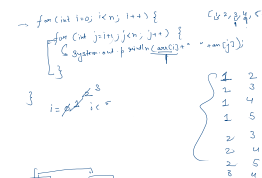 for (int i=0; i<n; i++) {
for (int j=i+1; j<n; j++) {
System.out.println(arr[i]+" "+arr[j]);
}
}
i = i < 5
1, 2, 3, 4, 5
1 2
1 3
1 4
1 5
2 3
2 4
2 5
3 4